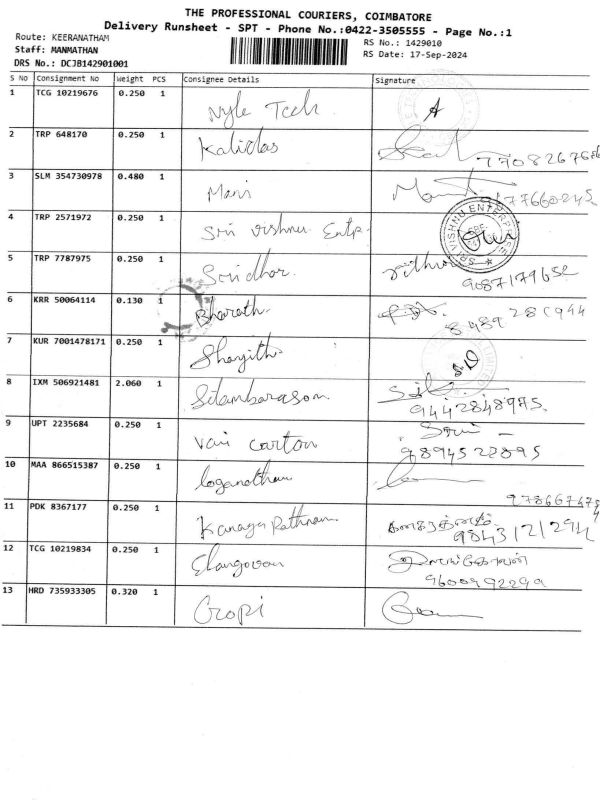 THE PROFESSIONAL COURIERS, COIMBATORE
Delivery Runsheet - SPT - Phone No.:0422-3505555 - Page No.:1
Route: KEERANATHAM
RS No.: 1429010
Staff: MANMATHAN
RS Date: 17-Sep-2024
DRS No.: DCJB142901001
S No Consignment No Weight PCS Consignee Details Signature
1 TCG 10219676 0.250 1 Nyle Tech A
2 TRP 648170 0.250 1 Kalidas
7708267676
3 SLM 354730978 0.480 1 Mani
4 TRP 2571972 0.250 1 Sri vishnu Entp.
SRI VISHNU ENTERPRISE
5 TRP 7787975 0.250 1 Sridhar.
9087179652
6 KRR 50064114 0.130 1 Bharath.
8489281944
7 KUR 7001478171 0.250 1 Shayith
8 IXM 506921481 2.060 1 Silambarason
9442848975
9 UPT 2235684 0.250 1 vani carton
9894522895
10 MAA 866515387 0.250 1 loganatham
11 PDK 8367177 0.250 1 Kanaga Rathnam
9843121294
12 TCG 10219834 0.250 1 Elangovan இளங்கோவன்
9600992299
13 HRD 735933305 0.320 1 Gopi